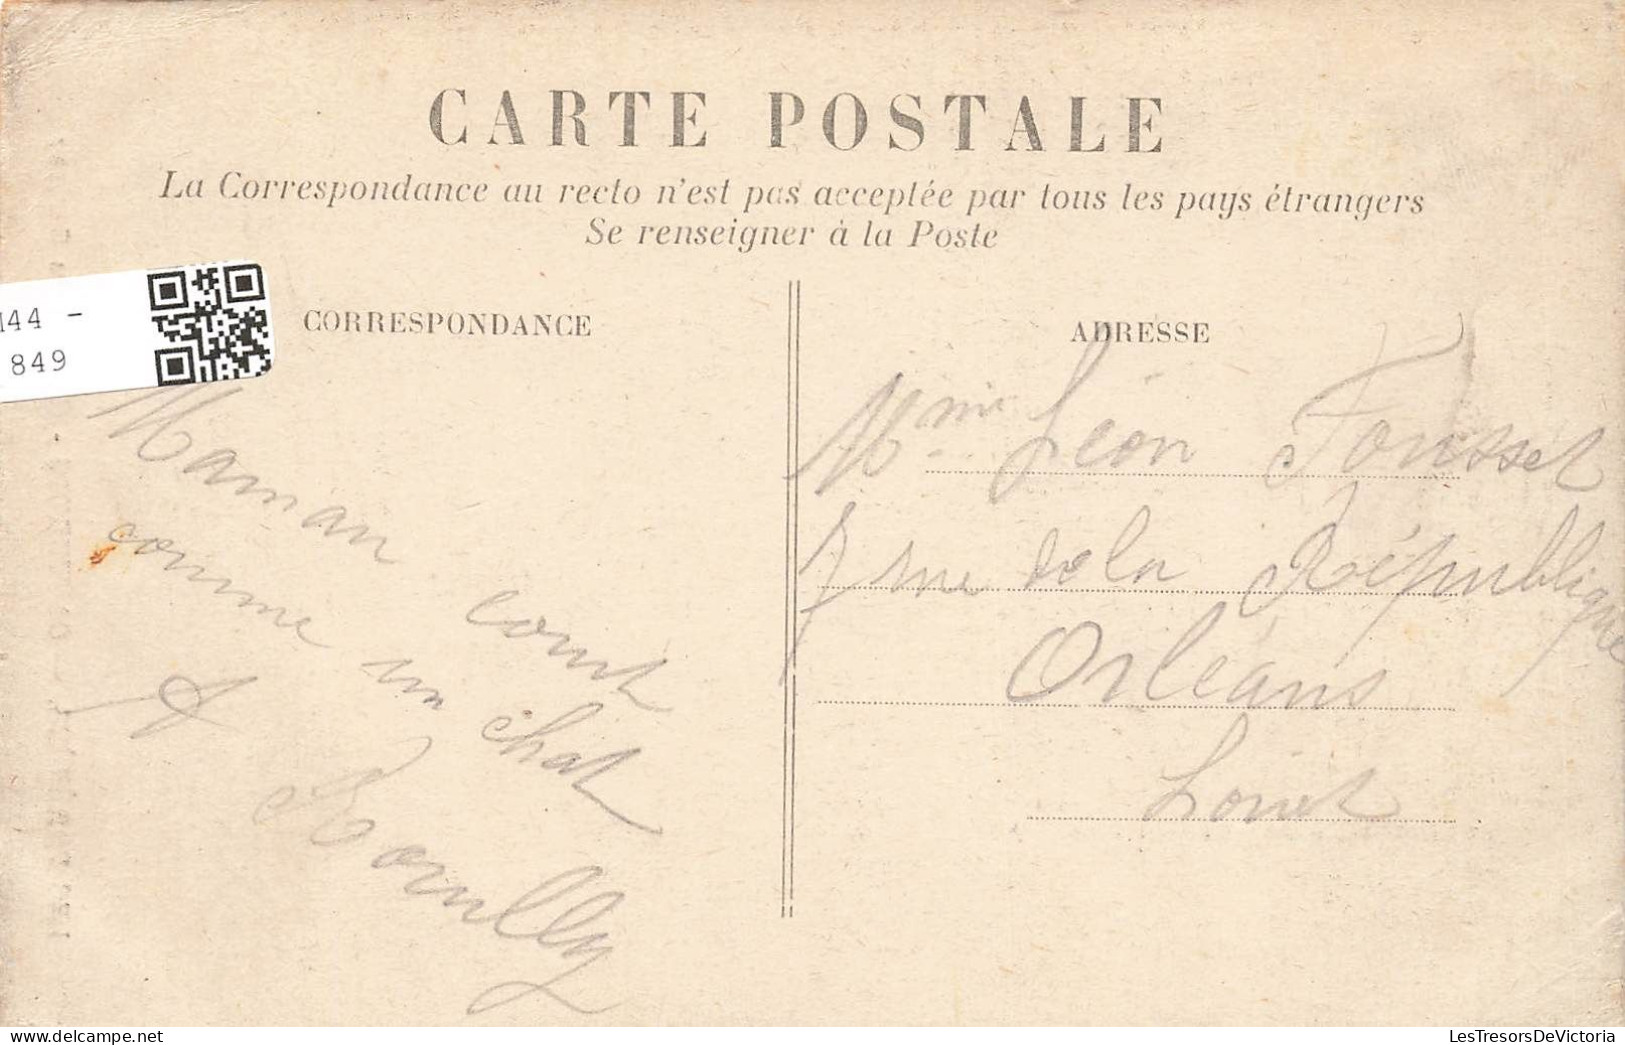 CARTE POSTALE
La Correspondance au recto n'est pas acceptée par tous les pays étrangers
Se renseigner à la Poste
44 -
849
CORRESPONDANCE
Maman court
comme un chat
A Rouilly
ADRESSE
Mme Léon Fousset
7 rue de la République
Orléans
Loiret
LesTresorsDeVictoria